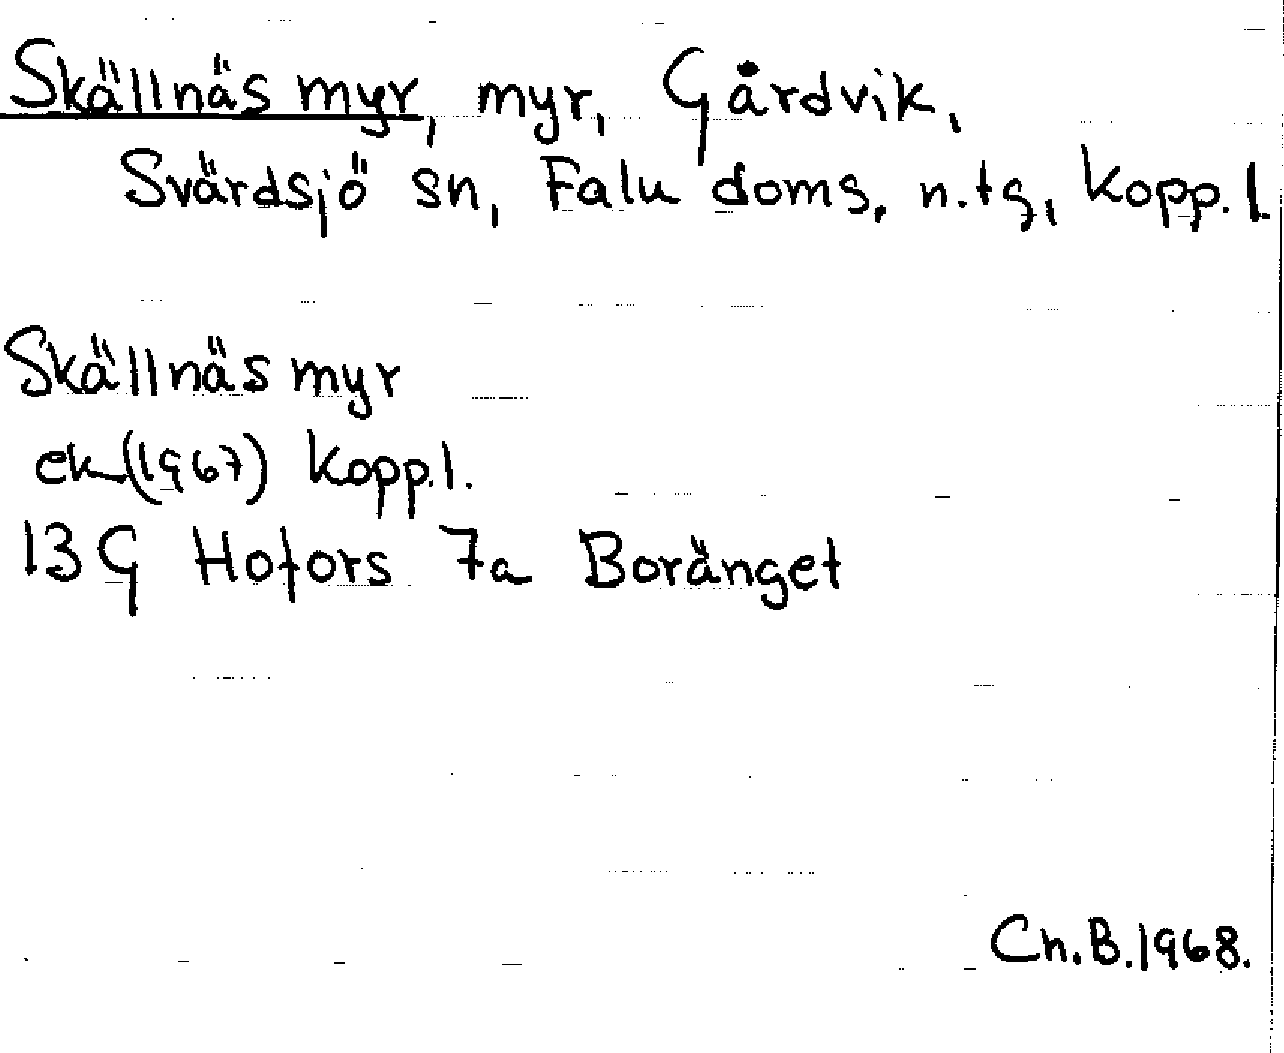 Skällnäs myr, myr, Gårdvik,
Svärdsjö sn, Falu doms. n.tg, Kopp. l.
Skällnäs myr
ek (1967) Kopp. l.
13G Hofors 7a Boränget
Ch.B.1968.